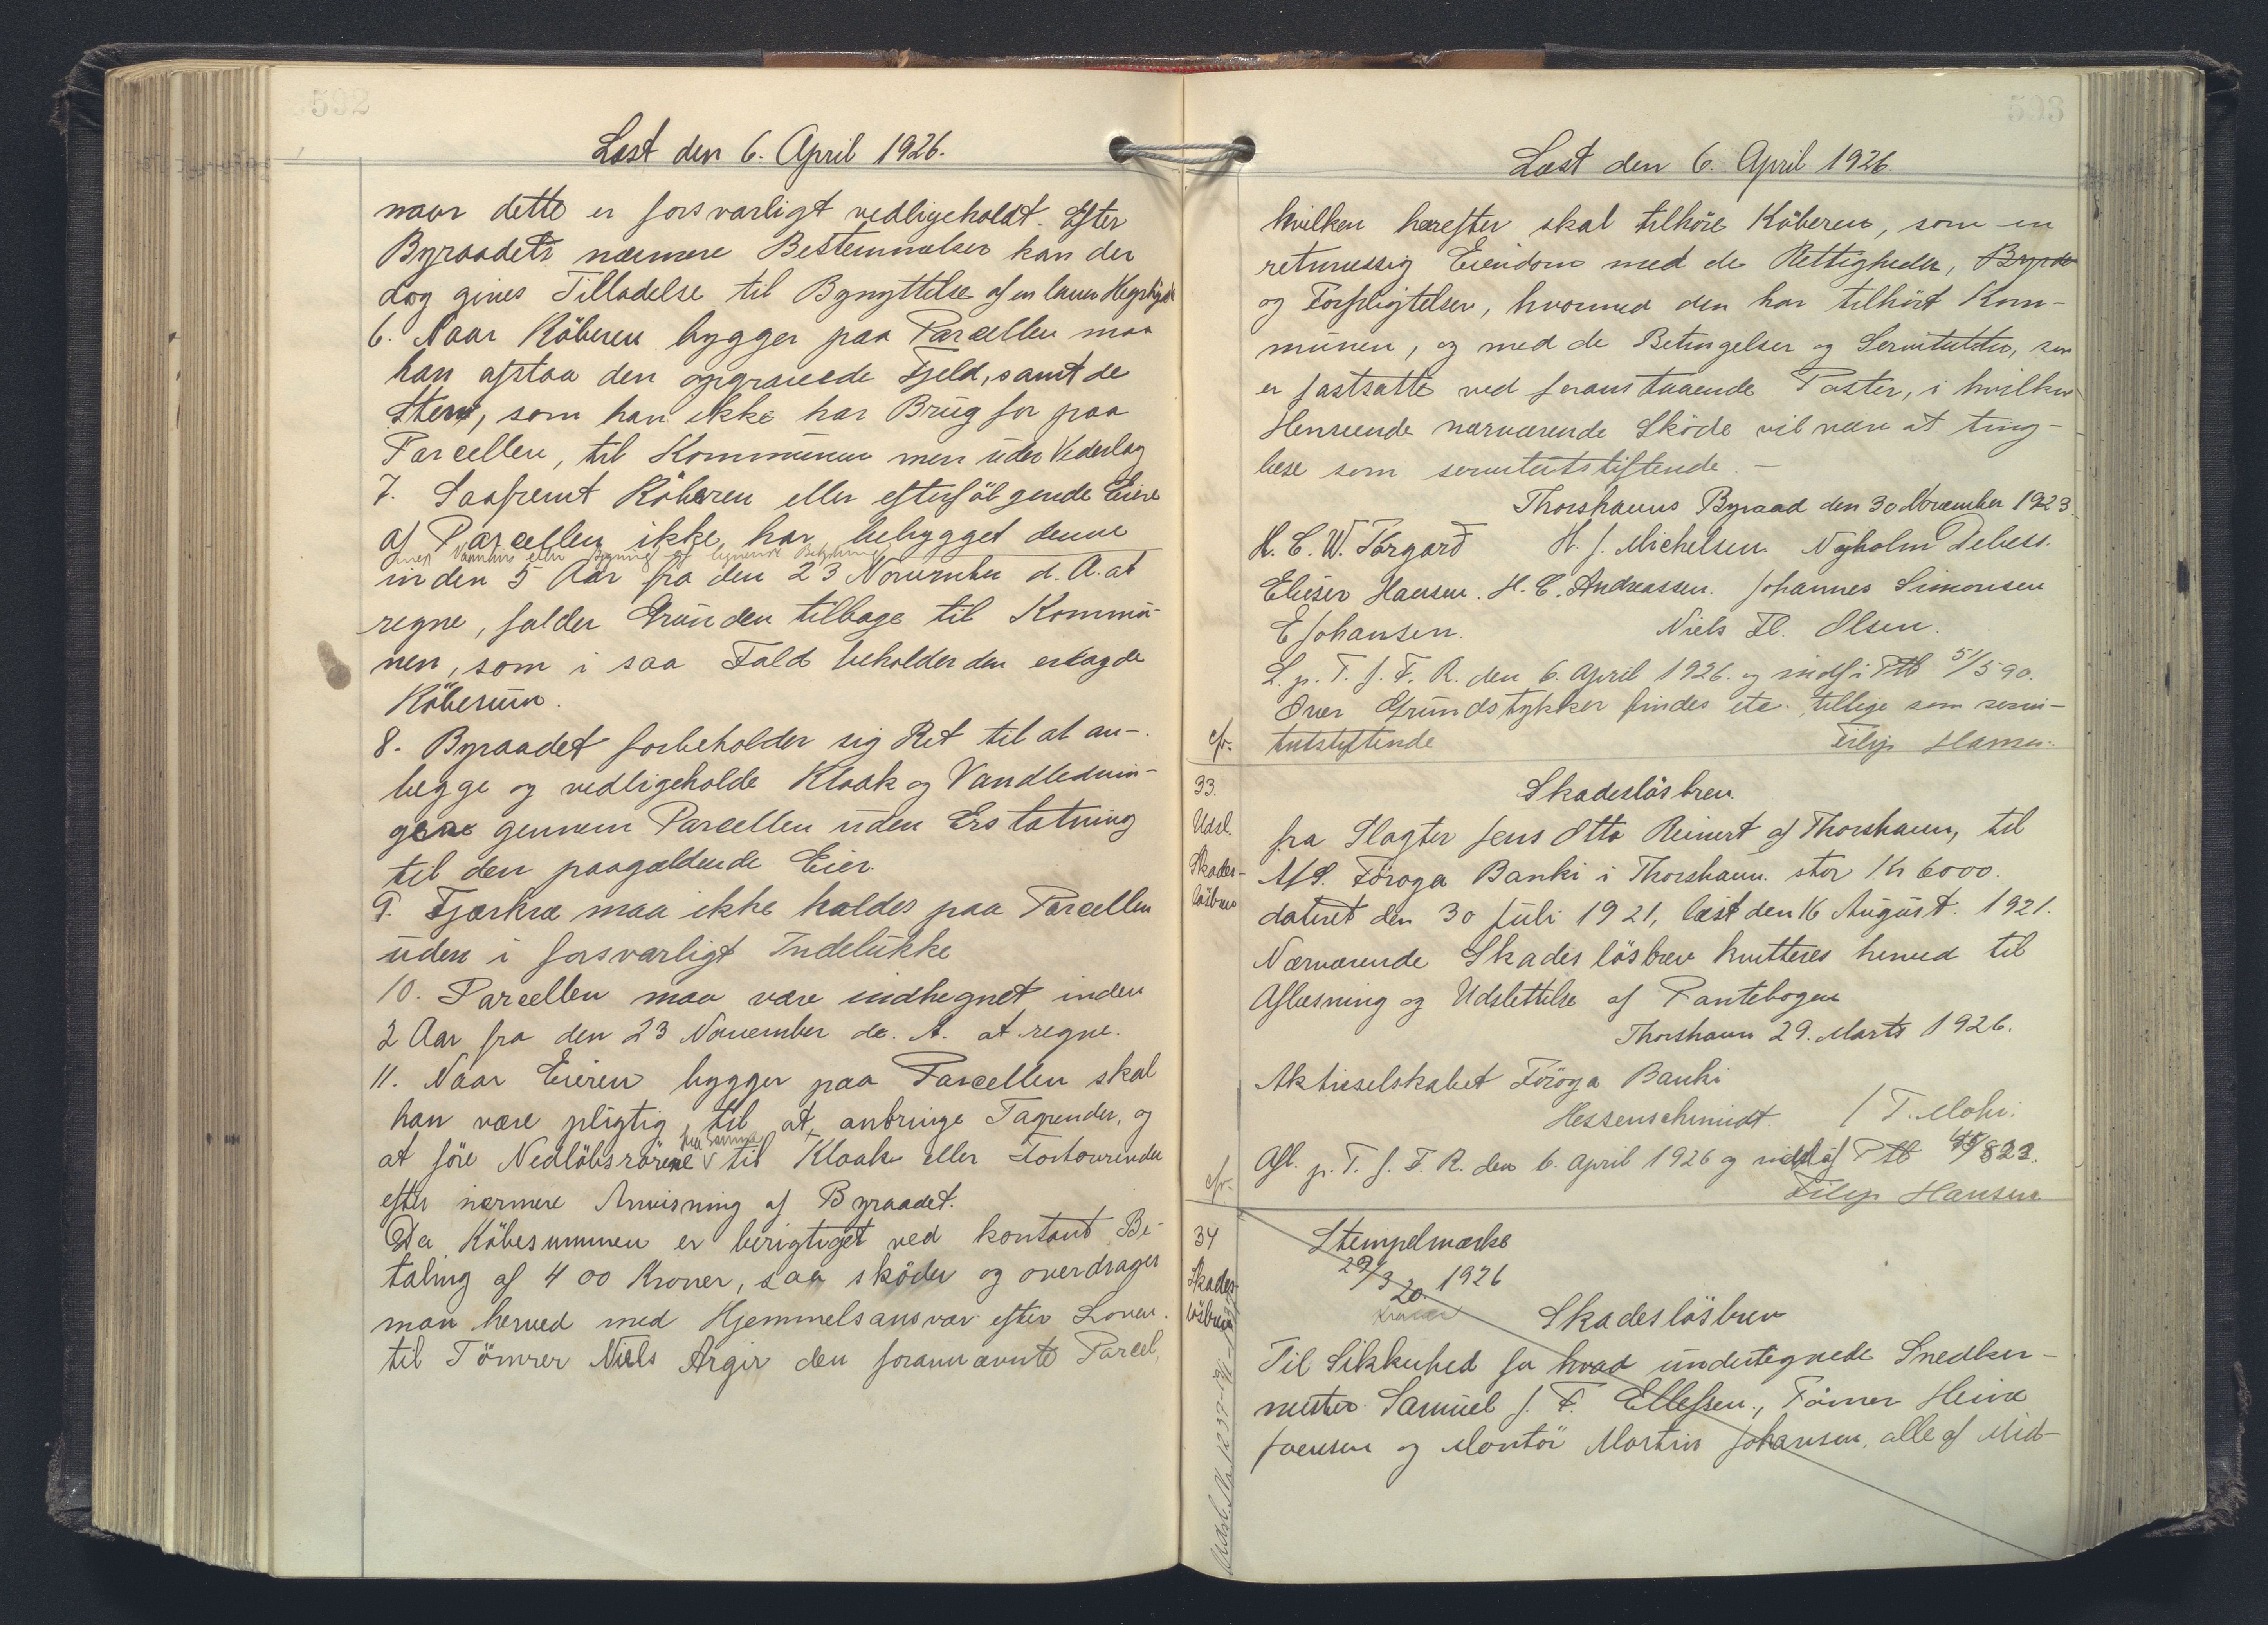 592
Læst den 6. April 1926.
naar dette er forsvarligt vedligeholdt. Efter
Byraadets nærmere Bestemmelser kan der
dog gives Tilladelse til Benyttelse af en lavere
6. Naar Köberen bygger paa Parcellen maa
han afstaa den opgravede Fjeld, samt de
Sten, som han ikke har Brug for paa
Parcellen, til Kommunen men uden Vederlag
7. Saafremt Köberen eller efterfölgende Eiere
af Parcellen ikke har bebygget denne
inden 5 Aar fra den 23 November d. A. at
regne, falder Grunden tilbage til Kommu-
nen, som i saa Fald beholder den erlagde
Köbesum.
8. Byraadet forbeholder sig Ret til at an-
lægge og vedligeholde Kloak og Vandlednin-
gene gennem Parcellen uden Erstatning
til den paagældende Eier.
9. Fjerkræ maa ikke holdes paa Parcellen
uden i forsvarligt Indelukke
10. Parcellen maa være indhegnet inden
2 Aar fra den 23 November de. A. at regne.
11. Naar Eieren bygger paa Parcellen skal
han være pligtig til at anbringe Tagrender, og
at före Nedlöbsrörene fra samme til Kloak eller Fortovrenden
efter nærmere Anvisning af Byraadet.
Da Köbesummen er berigtiget ved kontant Be-
taling af 400 Kroner, saa sköder og overdrager
man herved med Hjemmelsansvar efter Loven
til Tömrer Niels Argir den forannævnte Parcel,
593
Læst den 6. April 1926.
hvilken herefter skal tilhöre Köberen, som en
retmæssig Eiendom med de Rettigheder, Byrde
og Forpligtelser, hvormed den har tilhört Kom-
munen, og med de Betingelser og Servitutter, som
er fastsatte ved foranstaaende Poster, i hvilken
Henseende nærværende Sköde vil være at ting-
læse som servitutstiftende. -
Thorshavns Byraad den 30 November 1923.
H. C. W. Törgarð H. J. Michelsen. Nyholm Debess.
Elieser Hansen. H. C. Andreassen. Johannes Simonsen
E Johansen. Niels Fl. Olsen.
L. p. T. f. F. R. den 6. April 1926. og indf i Ptb 51/590.
Over Grundstykker findes etc. tillige som servi-
cfr. tutstiftende Filip Hansen.
33.
Udsl.
Skades-
lösbrev
Skadeslösbrev.
fra Slagter Jens Otto Reinert af Thorshavn, til
A/S. Föroya Banki i Thorshavn. stor Kr 6000.
dateret den 30 Juli 1921, læst den 16 August. 1921.
Nærværende Skadeslösbrev kvitteres herved til
Aflæsning og Udslettelse af Pantebogen
Thorshavn 29. Marts 1926.
Aktieselskabet Föroya Banki
Hessenschmidt. / T. Mohr.
Afl. p. T. f. F. R. den 6. April 1926 og udsl af Ptb /823.
cfr. Filip Hansen
34
Skades-
lösbrev
Stempelmærke
29/3 1926
20
Kroner
Skadeslösbrev
Til Sikkerhed for hvad undertegnede Snedker-
mester Samuel J. F. Ellefsen., Tömrer Heina
Joensen og Montör Martin Johansen, alle af Mid-